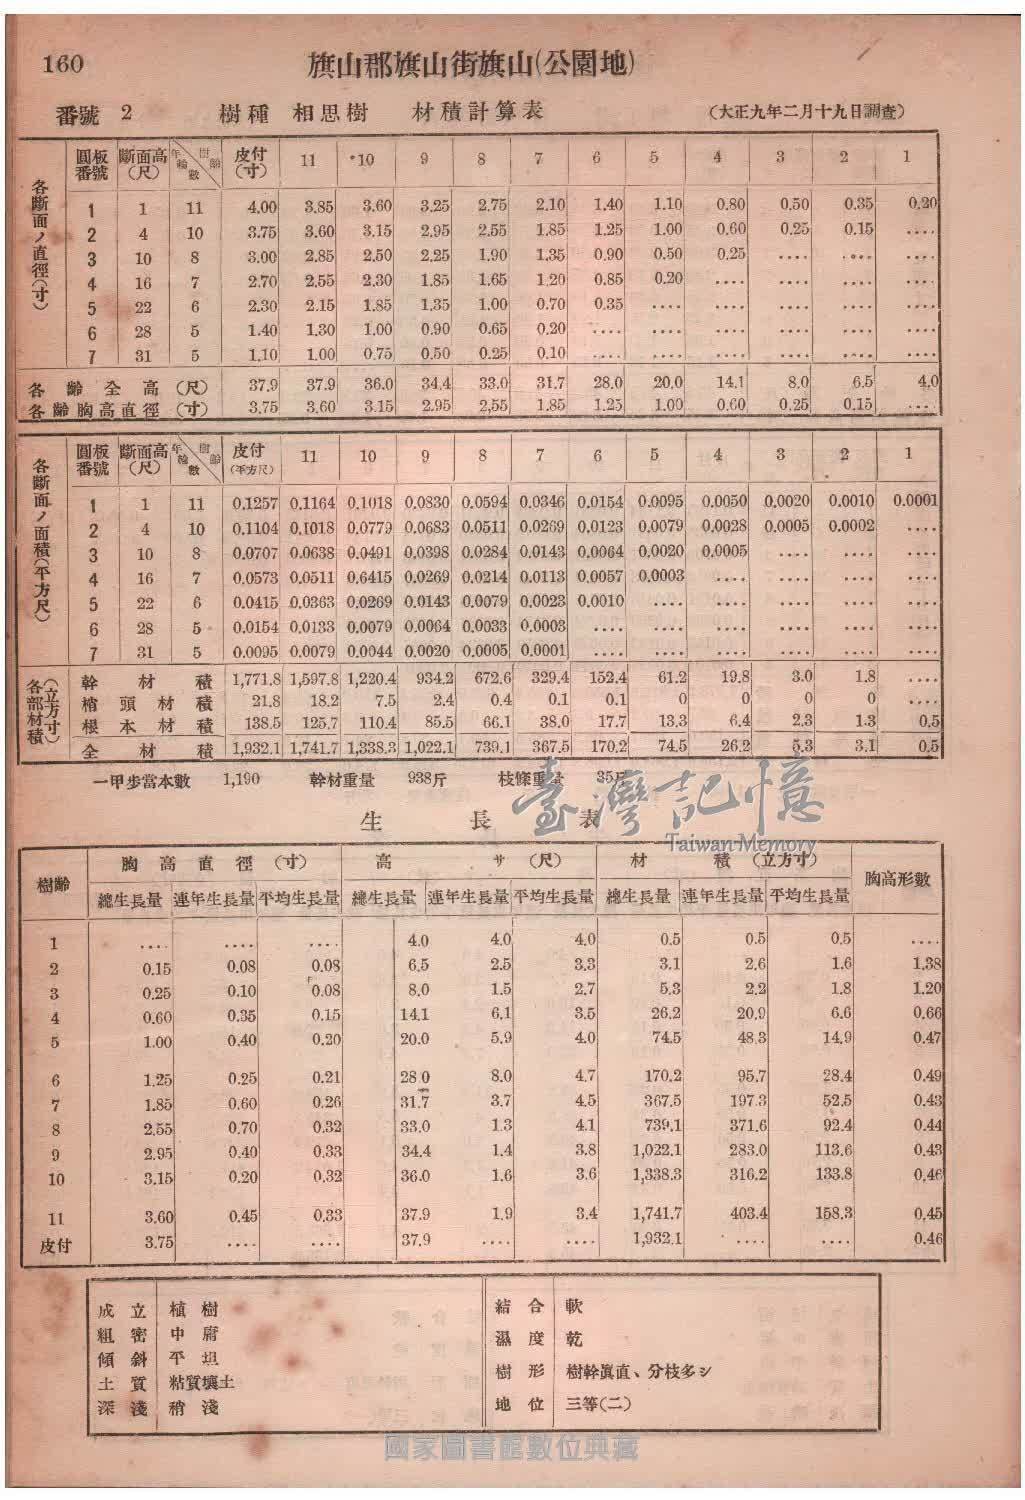 160
旗山郡旗山街旗山(公園地)
番號 2 樹種 相思樹 材積計算表 (大正九年二月十九日調査)
各斷面ノ直徑(寸)
圓板番號 斷面高(尺) 年輪數 樹齡 皮付(寸) 11 10 9 8 7 6 5 4 3 2 1
1 1 11 4.00 3.85 3.60 3.25 2.75 2.10 1.40 1.10 0.80 0.50 0.35 0.20
2 4 10 3.75 3.60 3.15 2.95 2.55 1.85 1.25 1.00 0.60 0.25 0.15 ....
3 10 8 3.00 2.85 2.50 2.25 1.90 1.35 0.90 0.50 0.25 .... .... ....
4 16 7 2.70 2.55 2.30 1.85 1.65 1.20 0.85 0.20 .... .... .... ....
5 22 6 2.30 2.15 1.85 1.35 1.00 0.70 0.35 .... .... .... .... ....
6 28 5 1.40 1.30 1.00 0.90 0.65 0.20 .... .... .... .... .... ....
7 31 5 1.10 1.00 0.75 0.50 0.25 0.10 .... .... .... .... .... ....
各齡全高(尺) 37.9 37.9 36.0 34.4 33.0 31.7 28.0 20.0 14.1 8.0 6.5 4.0
各齡胸高直徑(寸) 3.75 3.60 3.15 2.95 2.55 1.85 1.25 1.00 0.60 0.25 0.15 ....
各斷面ノ面積(平方尺)
圓板番號 斷面高(尺) 年輪數 樹齡 皮付(平方尺) 11 10 9 8 7 6 5 4 3 2 1
1 1 11 0.1257 0.1164 0.1018 0.0830 0.0594 0.0346 0.0154 0.0095 0.0050 0.0020 0.0010 0.0001
2 4 10 0.1104 0.1018 0.0779 0.0683 0.0511 0.0269 0.0123 0.0079 0.0028 0.0005 0.0002 ....
3 10 8 0.0707 0.0638 0.0491 0.0398 0.0284 0.0143 0.0064 0.0020 0.0005 .... .... ....
4 16 7 0.0573 0.0511 0.6415 0.0269 0.0214 0.0113 0.0057 0.0003 .... .... .... ....
5 22 6 0.0415 0.0363 0.0269 0.0143 0.0079 0.0023 0.0010 .... .... .... .... ....
6 28 5 0.0154 0.0133 0.0079 0.0064 0.0033 0.0003 .... .... .... .... .... ....
7 31 5 0.0095 0.0079 0.0044 0.0020 0.0005 0.0001 .... .... .... .... .... ....
各部材積(立方寸)
幹材積 1,771.8 1,597.8 1,220.4 934.2 672.6 329.4 152.4 61.2 19.8 3.0 1.8 ....
梢頭材積 21.8 18.2 7.5 2.4 0.4 0.1 0.1 0 0 0 0 ....
根本材積 138.5 125.7 110.4 85.5 66.1 38.0 17.7 13.3 6.4 2.3 1.3 0.5
全材積 1,932.1 1,741.7 1,338.3 1,022.1 739.1 367.5 170.2 74.5 26.2 5.3 3.1 0.5
一甲步當本數 1,190 幹材重量 938斤 枝條重量 35斤
臺灣記憶
Taiwan Memory
生長表
樹齡 胸高直徑(寸) 高サ(尺) 材積(立方寸) 胸高形數
總生長量 連年生長量 平均生長量 總生長量 連年生長量 平均生長量 總生長量 連年生長量 平均生長量
1 .... .... .... 4.0 4.0 4.0 0.5 0.5 0.5 ....
2 0.15 0.08 0.08 6.5 2.5 3.3 3.1 2.6 1.6 1.38
3 0.25 0.10 0.08 8.0 1.5 2.7 5.3 2.2 1.8 1.20
4 0.60 0.35 0.15 14.1 6.1 3.5 26.2 20.9 6.6 0.66
5 1.00 0.40 0.20 20.0 5.9 4.0 74.5 48.3 14.9 0.47
6 1.25 0.25 0.21 28.0 8.0 4.7 170.2 95.7 28.4 0.49
7 1.85 0.60 0.26 31.7 3.7 4.5 367.5 197.3 52.5 0.43
8 2.55 0.70 0.32 33.0 1.3 4.1 739.1 371.6 92.4 0.44
9 2.95 0.40 0.33 34.4 1.4 3.8 1,022.1 283.0 113.6 0.43
10 3.15 0.20 0.32 36.0 1.6 3.6 1,338.3 316.2 133.8 0.46
11 3.60 0.45 0.33 37.9 1.9 3.4 1,741.7 403.4 158.3 0.45
皮付 3.75 .... .... 37.9 .... .... 1,932.1 .... .... 0.46
成立 植樹 結合 軟
粗密 中庸 濕度 乾
傾斜 平坦 樹形 樹幹眞直、分枝多シ
土質 粘質壤土 地位 三等(二)
深淺 稍淺
國家圖書館數位典藏